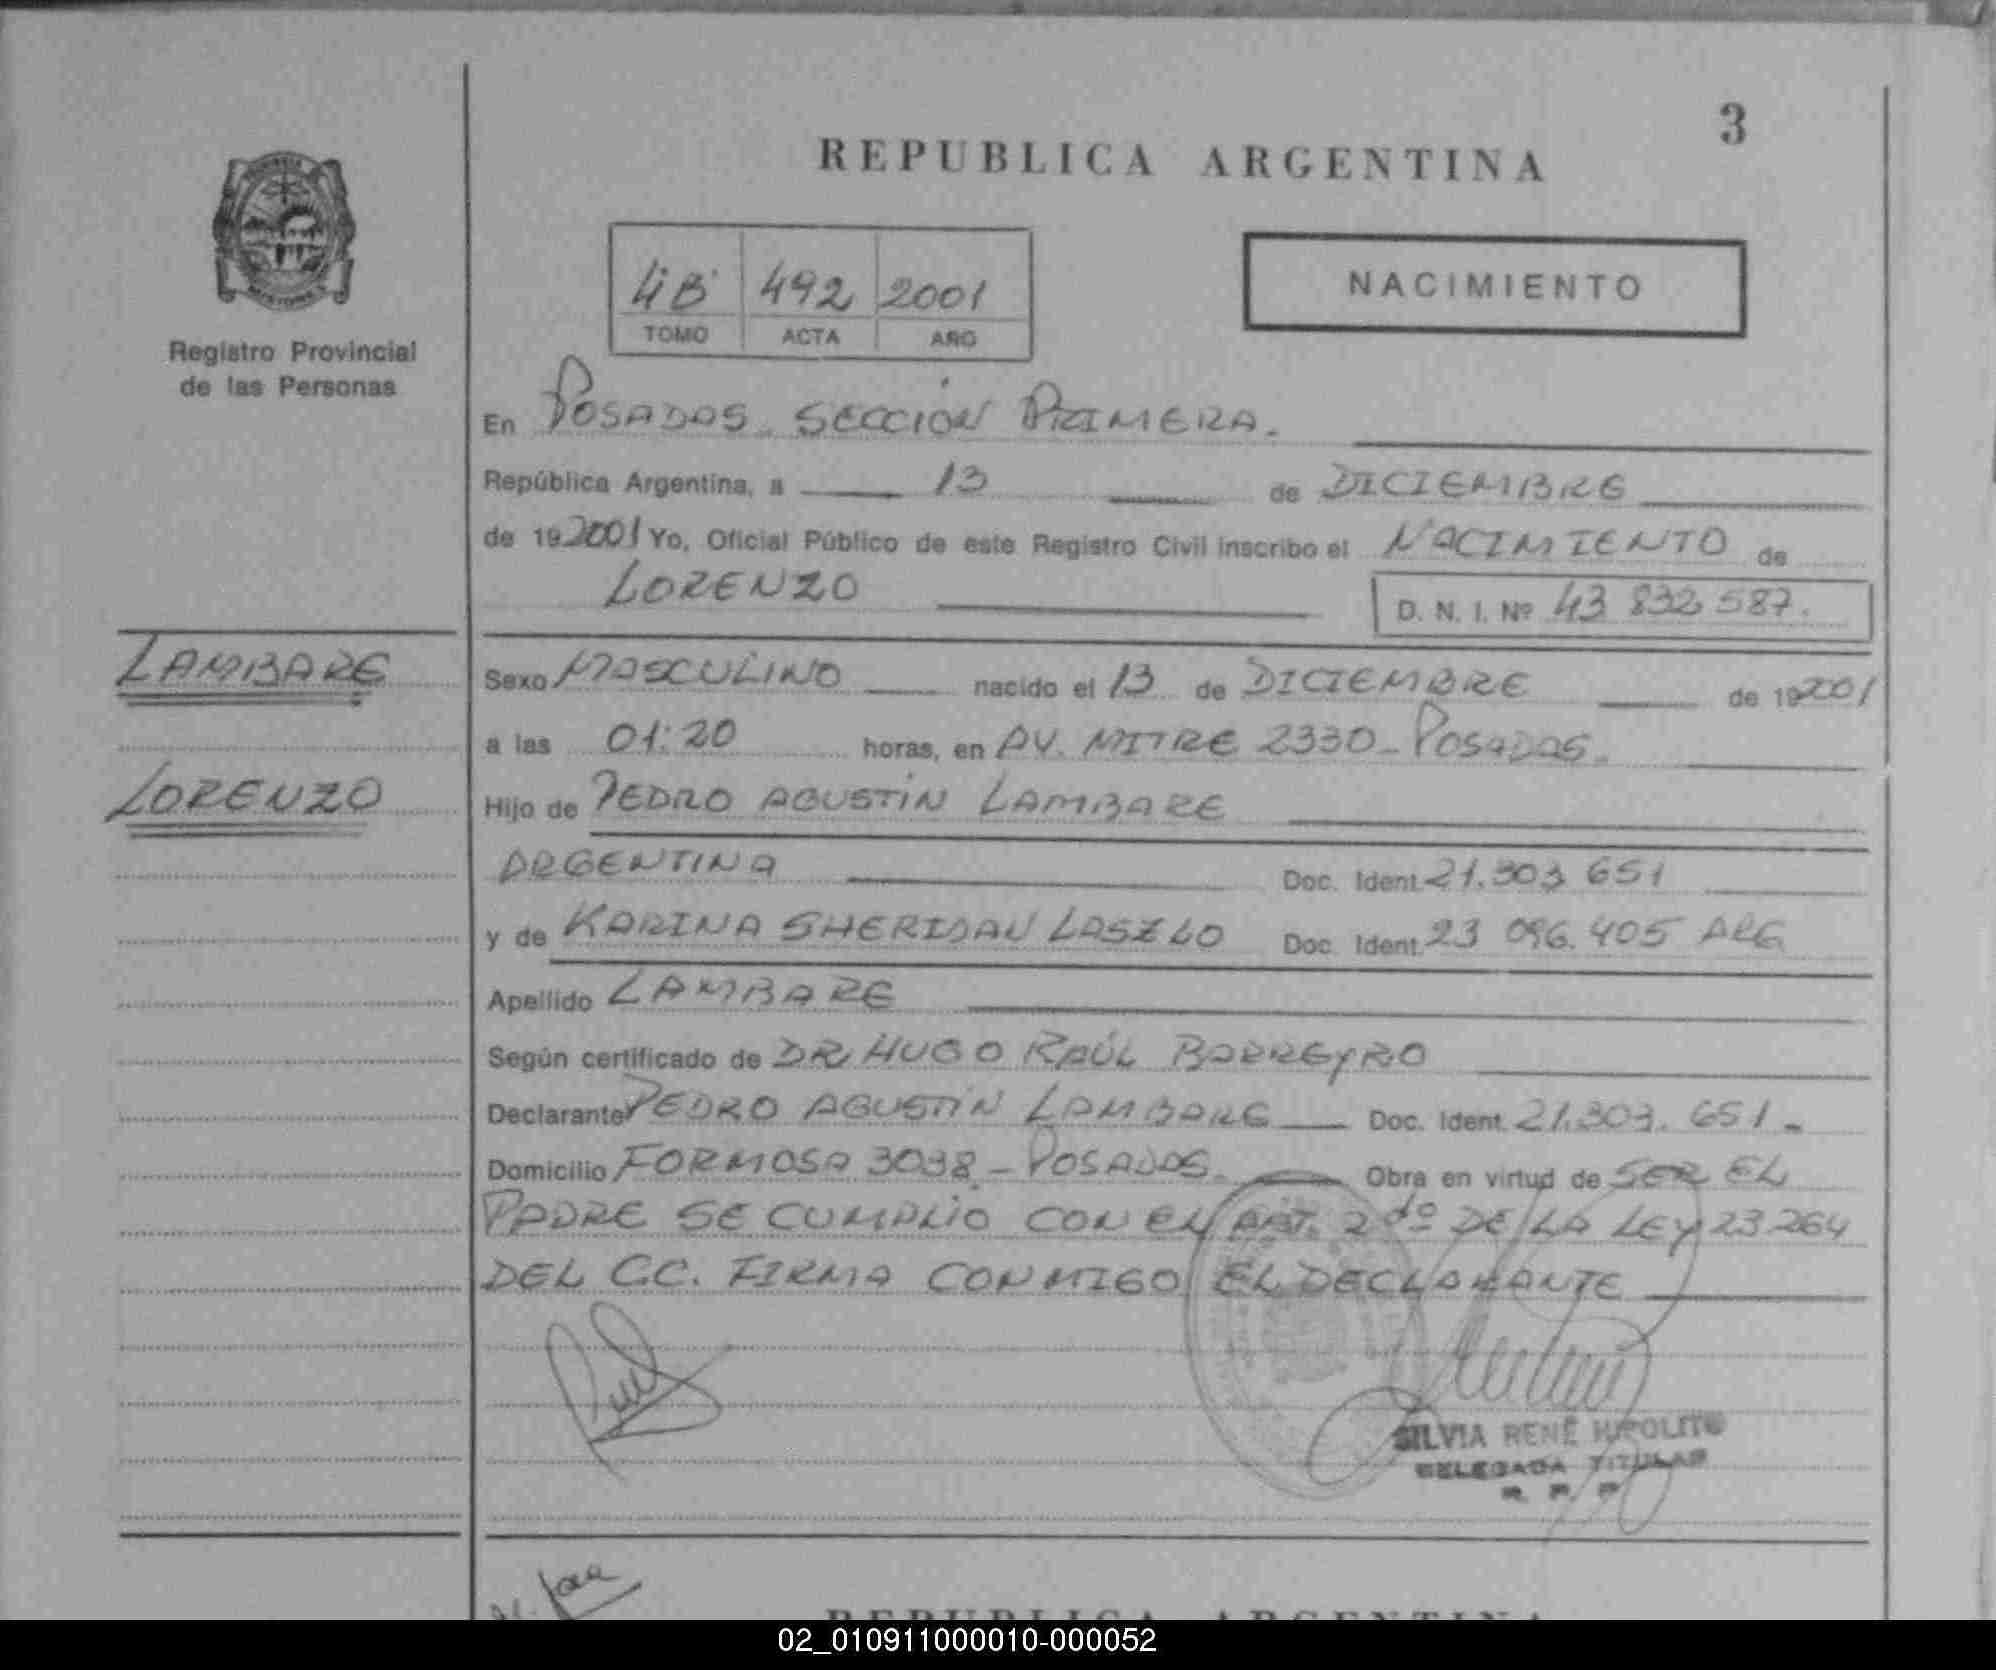 3
REPUBLICA ARGENTINA
NACIMIENTO
4B 492 2001
TOMO ACTA AÑO
Registro Provincial
de las Personas
En POSADAS SECCIÓN PRIMERA.
República Argentina, a 13 de DICIEMBRE
de 19 2001 Yo, Oficial Público de este Registro Civil inscribo el NACIMIENTO de
LORENZO D. N. I. Nº 43 832 587.
LAMBARE
LORENZO
Sexo MASCULINO nacido el 13 de DICIEMBRE de 19 2001
a las 01:20 horas, en AV. MITRE 2330 - POSADAS.
Hijo de PEDRO AGUSTÍN LAMBARE
ARGENTINA Doc. Ident. 21.303 651
y de KARINA SHERIDAN LASZLO Doc. Ident. 23 096.405 ARG
Apellido LAMBARE
Según certificado de DR HUGO RAÚL BARREYRO
Declarante PEDRO AGUSTÍN LAMBARE Doc. Ident. 21.303. 651 -
Domicilio FORMOSA 3038 - POSADAS. Obra en virtud de SER EL
PADRE SE CUMPLIÓ CON EL ART. 2do DE LA LEY 23264
DEL C.C. FIRMA CONMIGO EL DECLARANTE
SILVIA RENÉ HIPOLITO
DELEGADA TITULAR
R. P. P.
REPUBLICA ARGENTINA
02_010911000010-000052